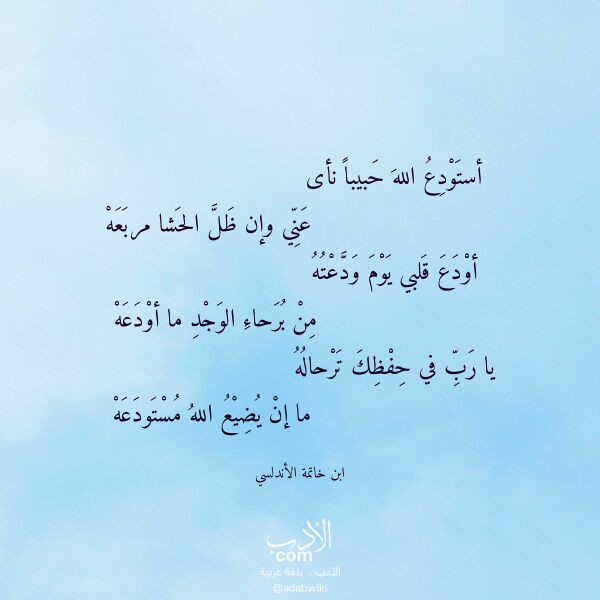 أستَوْدِعُ اللهَ حَبيباً نأى
عَنِّي وإن ظَلَّ الحَشا مربَعَهْ
أوْدَعَ قَلبي يَوْمَ وَدَّعْتُهُ
مِنْ بُرَحاءِ الوَجْدِ ما أوْدَعَهْ
يا رَبِّ في حِفْظِكَ تَرْحالُهُ
ما إنْ يُضِيْعُ اللهُ مُسْتَودَعَهْ
ابن خاتمة الأندلسي
الأدب
.com
الأدب .. بلغة عربية
@adabwiki